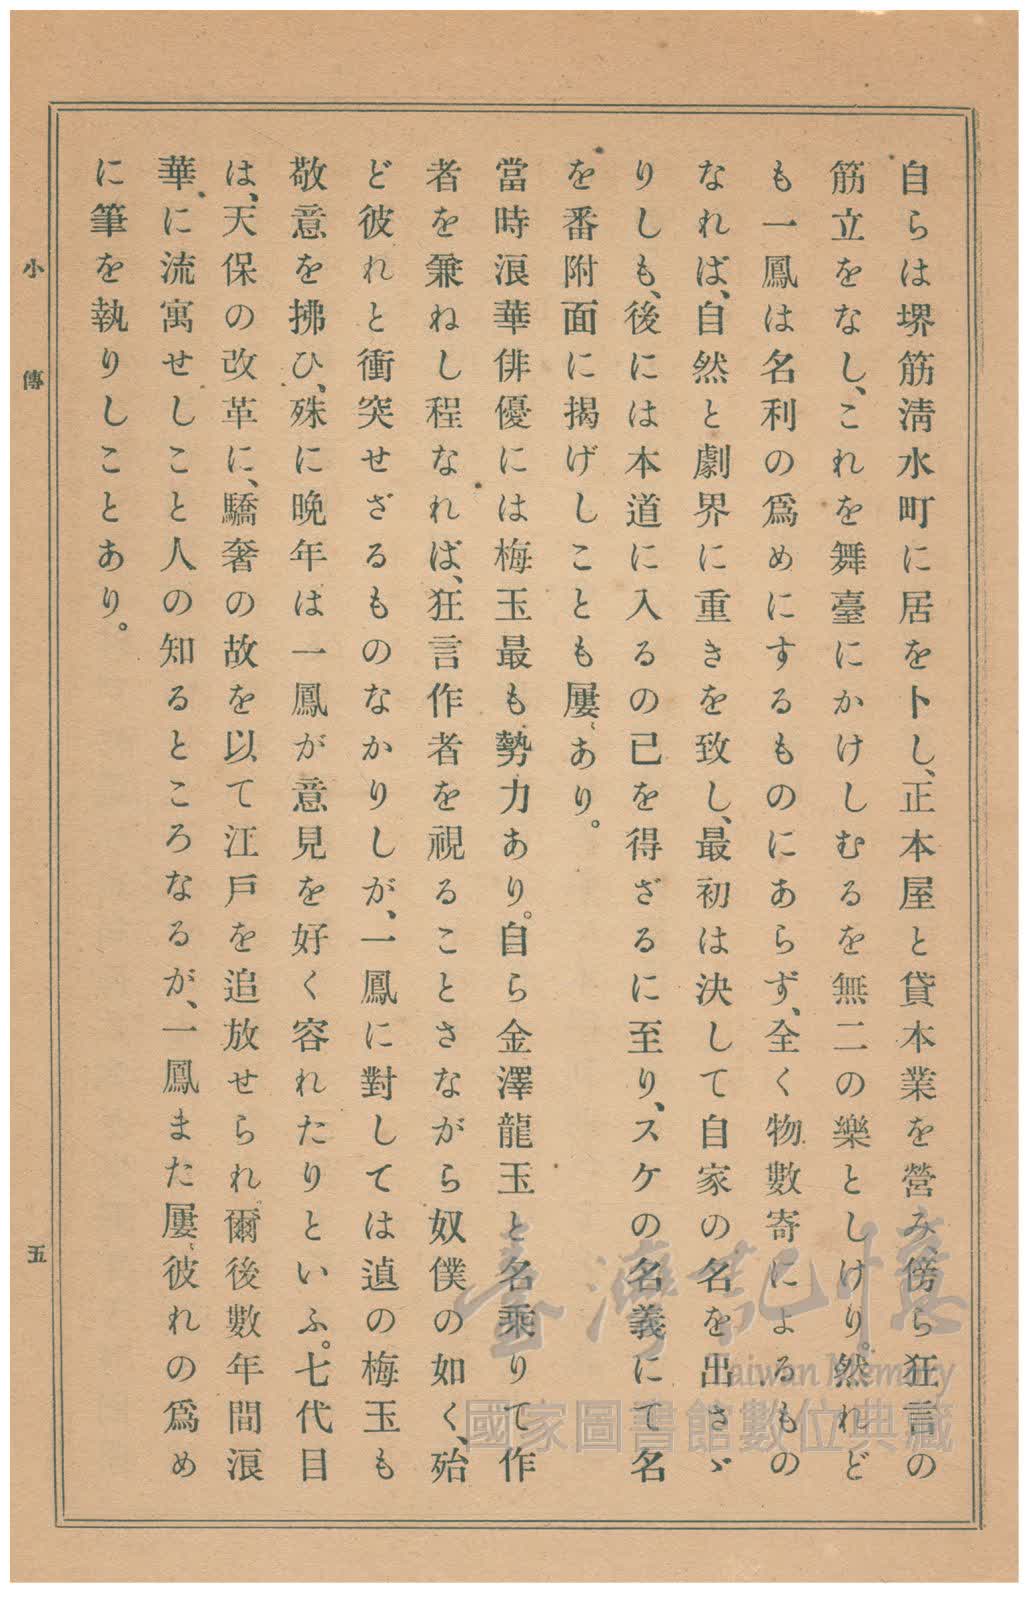 自らは堺筋淸水町に居をトし、正本屋と貸本業を營み、傍ら狂言の
筋立をなし、これを舞臺にかけしむるを無二の樂としけり。然れど
も一鳳は名利の爲めにするものにあらず、全く物數寄によるもの
なれば、自然と劇界に重きを致し、最初は決して自家の名を出さゞ
りしも、後には本道に入るの已を得ざるに至り、スケの名義にて名
を番附面に揭げしことも屢〻あり。
當時浪華俳優には梅玉最も勢力あり。自ら金澤龍玉と名乘りて作
者を兼ねし程なれば、狂言作者を視ることさながら奴僕の如く、殆
ど彼れと衝突せざるものなかりしが、一鳳に對しては遉の梅玉も
敬意を拂ひ、殊に晩年は一鳳が意見を好く容れたりといふ。七代目
は、天保の改革に、驕奢の故を以て江戶を追放せられ、爾後數年間浪
華に流寓せしこと人の知るところなるが、一鳳また屢〻彼れの爲め
に筆を執りしことあり。
小傳
五
臺灣記憶
Taiwan Memory
國家圖書館數位典藏